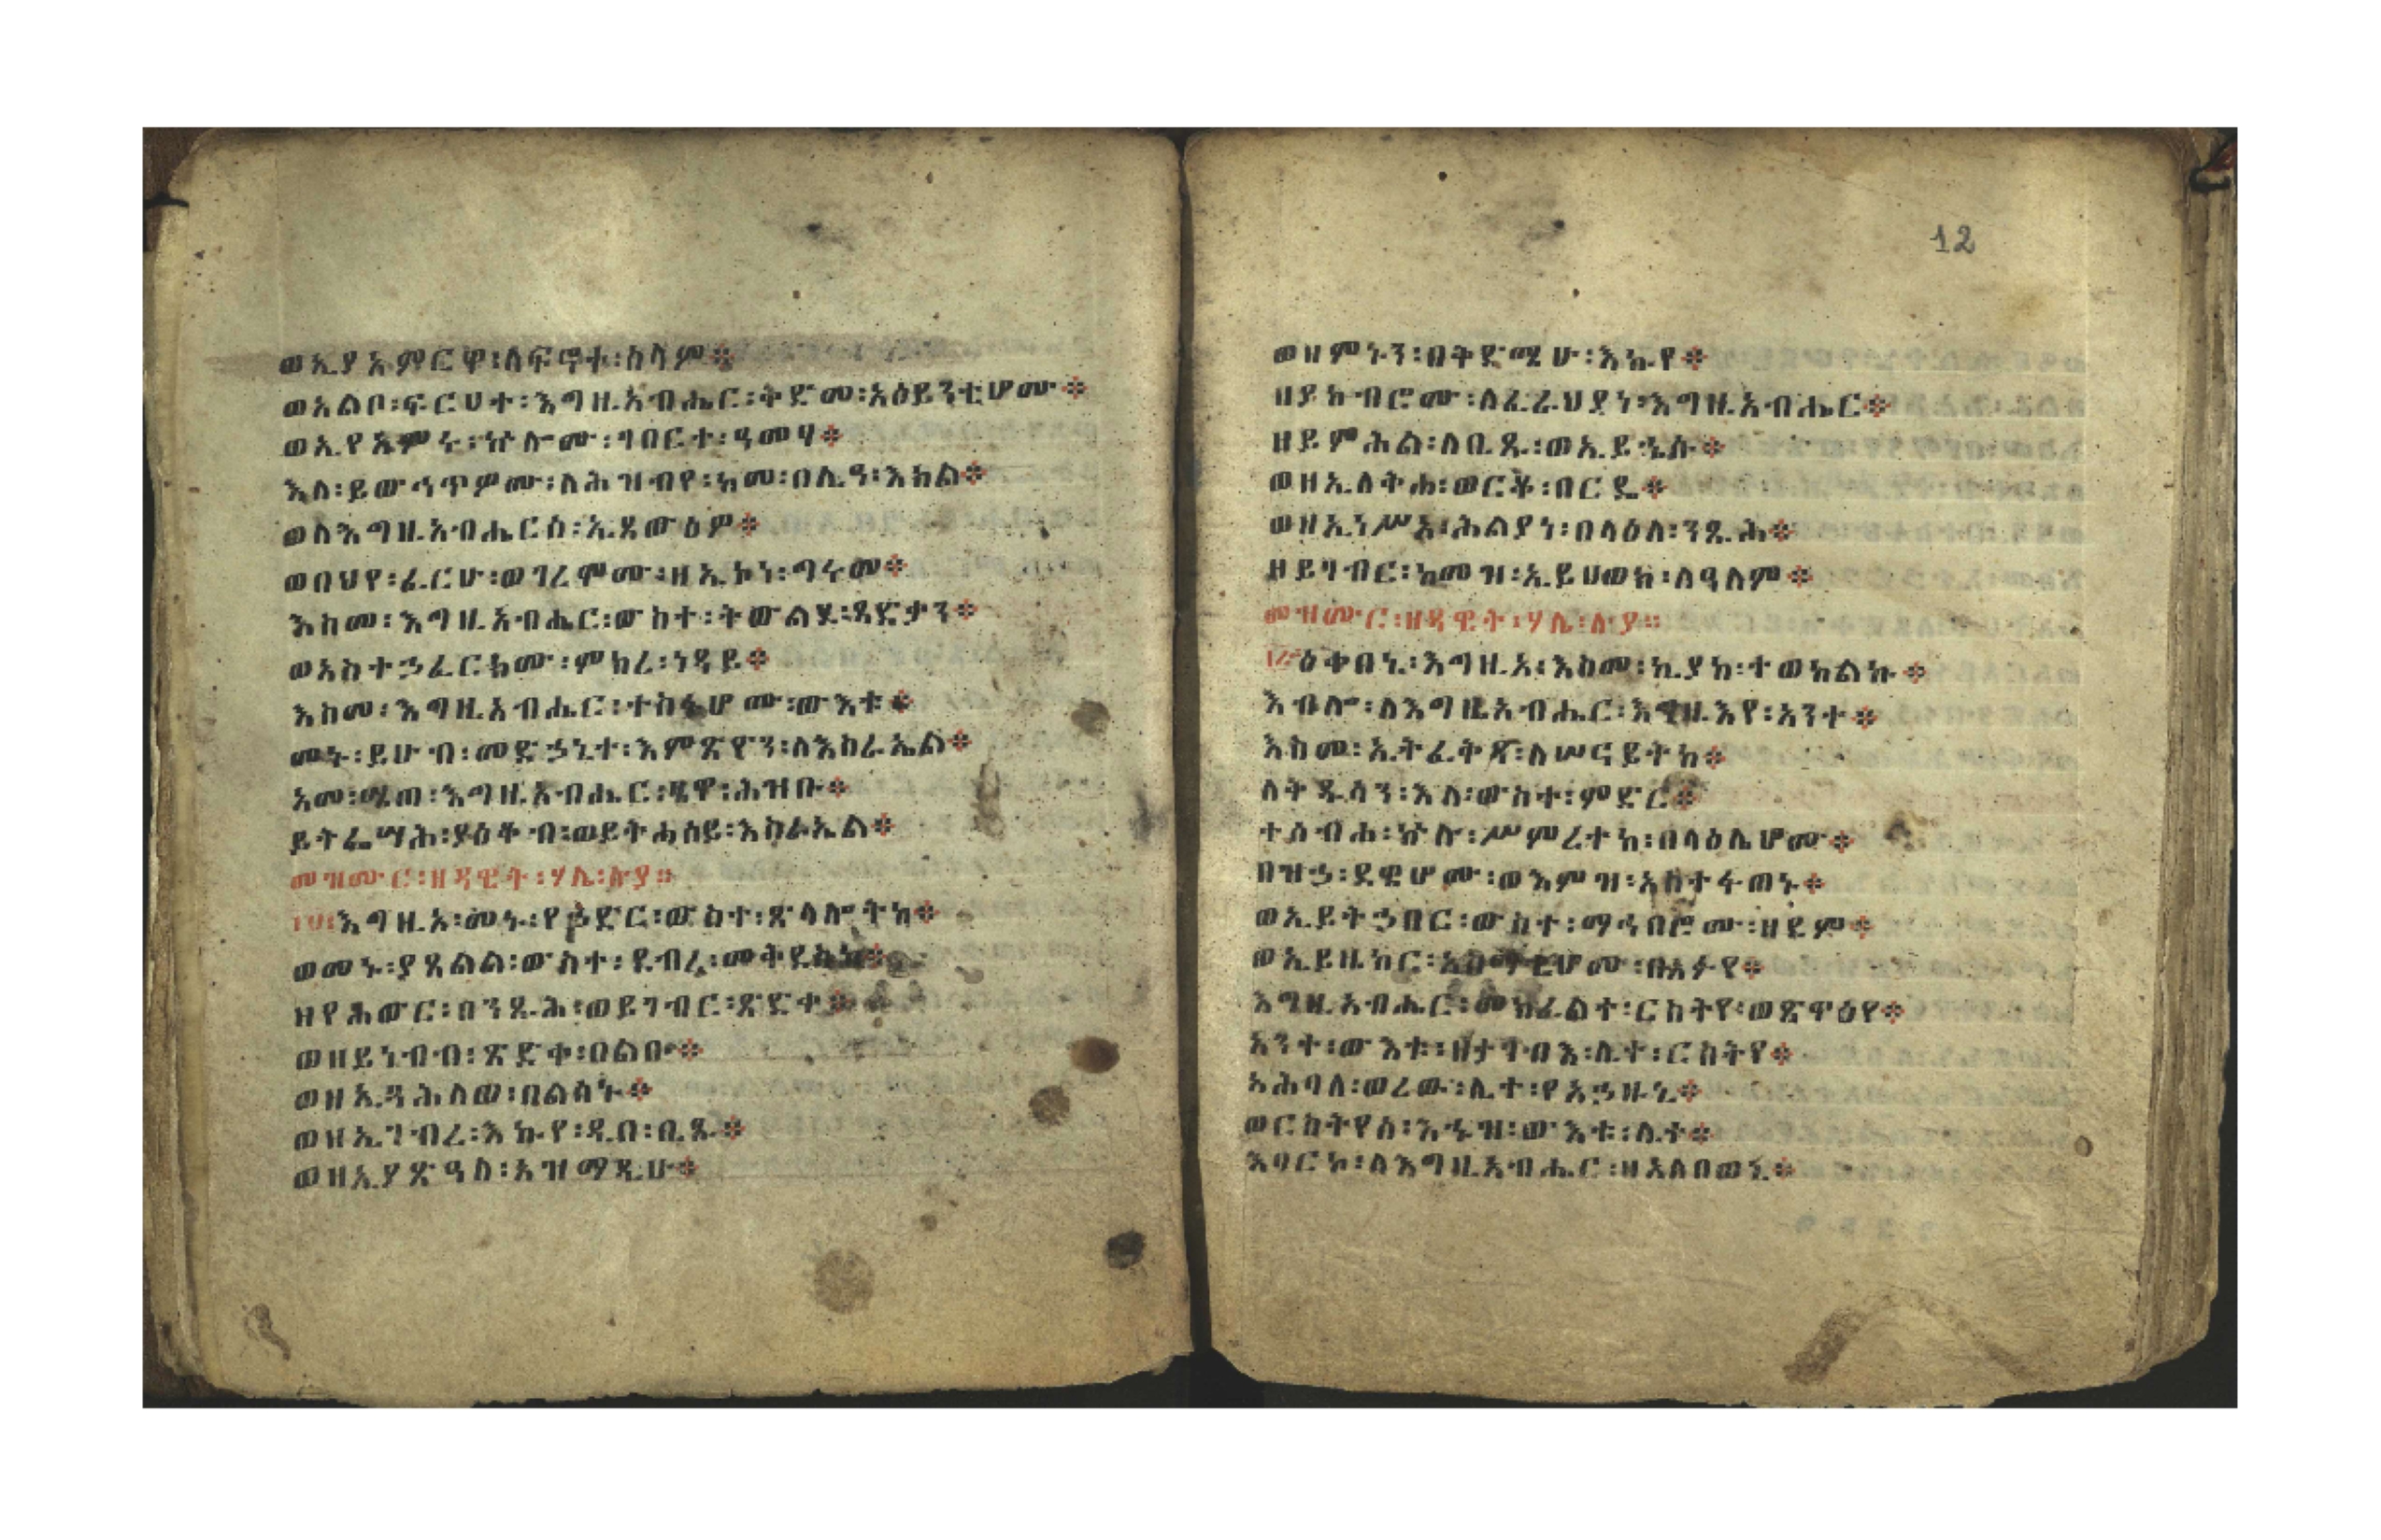 ወኢያአምርዋ፡ለፍኖተ፡ሰላም፨
ወአልቦ፡ፍርሀተ፡እግዚአብሔር፡ቅድመ፡አዕይንቲሆሙ፨
ወኢየአምሩ፡ኵሎሙ፡ገበርተ፡ዓመፃ፨
እለ፡ይውኅጥዎሙ፡ለሕዝብየ፡ከመ፡በሊዓ፡እክል፨
ወለእግዚአብሔርሰ፡ኢጸውዕዎ፨
ወበህየ፡ፈርሁ፡ወገረሞሙ፡ዘኢኮነ፡ግሩመ፨
እስመ፡እግዚአብሔር፡ውስተ፡ትውልደ፡ጻድቃን፨
ወአስተኃፈርክሙ፡ምክረ፡ነዳይ፨
እስመ፡እግዚአብሔር፡ተስፋሆሙ፡ውእቱ፨
መኑ፡ይሁብ፡መድኃኒተ፡እምጽዮን፡ለእስራኤል፨
አመ፡ሜጠ፡እግዚአብሔር፡ፄዋ፡ሕዝቡ፨
ይትፌሣሕ፡ያዕቆብ፡ወይትሐሰይ፡እስራኤል፨
መዝሙር፡ዘዳዊት፡ሃሌ፡ሉያ።
፲፬፡እግዚአ፡መኑ፡የኃድር፡ውስተ፡ጽላሎትከ፨
ወመኑ፡ያጸልል፡ውስተ፡ደብረ፡መቅደስከ፨
ዘየሐውር፡በንጹሕ፡ወይገብር፡ጽድቀ፨
ወዘይነብብ፡ጽድቀ፡በልቡ፨
ወዘኢጓሕለወ፡በልሳኑ፨
ወዘኢገብረ፡እኩየ፡ዲበ፡ቢጹ፨
ወዘኢያጽዓለ፡አዝማዲሁ፨
12
ወዘምኑን፡በቅድሜሁ፡እኩየ፨
ዘያከብሮሙ፡ለፈራህያነ፡እግዚአብሔር፨
ዘይምሕል፡ለቢጹ፡ወኢይኄሱ፨
ወዘኢለቅሐ፡ወርቆ፡በርዴ፨
ወዘኢነሥአ፡ሕልያነ፡በላዕለ፡ንጹሕ፨
ዘይገብር፡ከመዝ፡ኢይሀወክ፡ለዓለም፨
መዝሙር፡ዘዳዊት፡ሃሌ፡ሉያ።
፲፭ዕቀበኒ፡እግዚአ፡እስመ፡ኪያከ፡ተወከልኩ፨
እብሎ፡ለእግዚአብሔር፡እግዚእየ፡አንተ፨
እስመ፡ኢትፈትዳ፡ለሠናይትከ፨
ለትዱሳን፡እለ፡ውስተ፡ምድር፨
ተሰብሐ፡ኵሉ፡ሥምረተከ፡በላዕሌሆሙ፨
በዝኃ፡ደዌሆሙ፡ወእምዝ፡አስተፋጠኑ፨
ወኢይትኃበር፡ውስተ፡ማኅበሮሙ፡ዘደም፨
ወኢይዜከር፡አስማቲሆሙ፡በአፉየ፨
እግዚአብሔር፡መክፈልተ፡ርስትየ፡ወጽዋዕየ፨
አንተ፡ውእቱ፡ዘታገብእ፡ሊተ፡ርስትየ፨
አሕባለ፡ወረው፡ሊተ፡የአኃዙኒ፨
ወርስትየሰ፡እኁዝ፡ውእቱ፡ሊተ፨
እባርኮ፡ለእግዚአብሔር፡ዘአለበወኒ፨